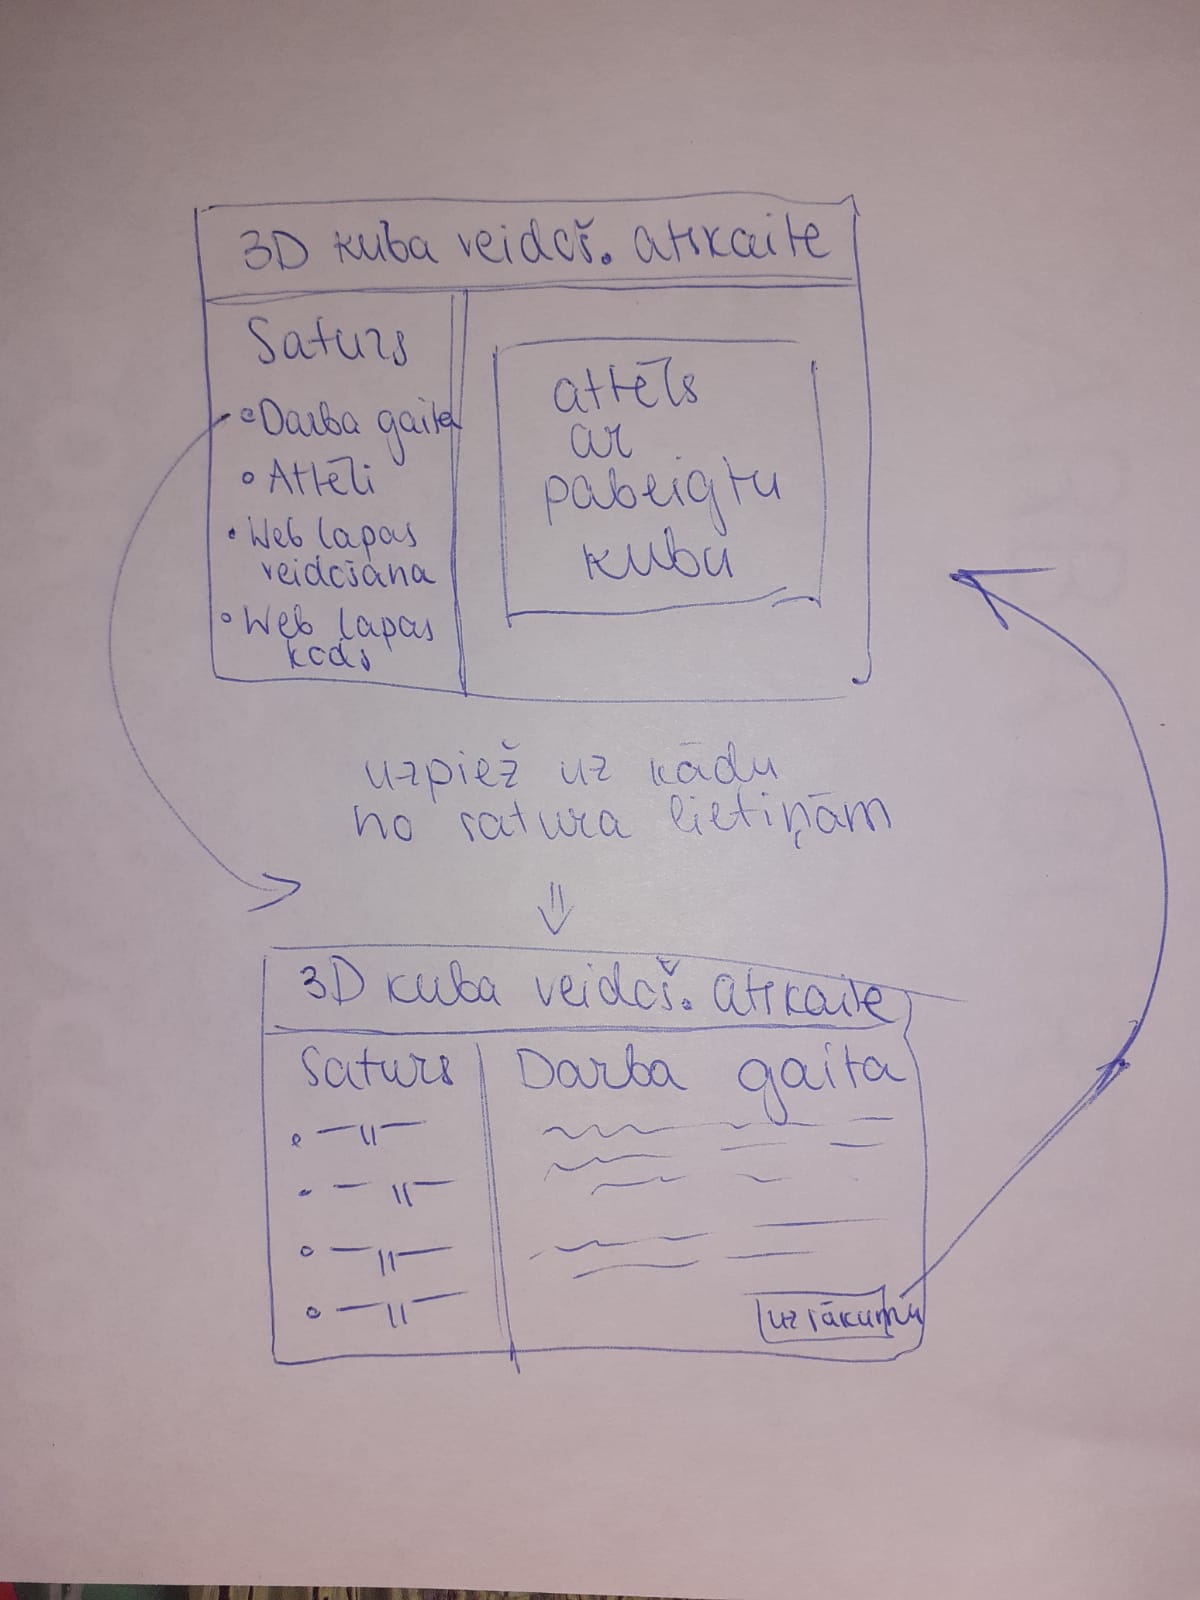 3D kuba veidoš. atskaite
Saturs
Darba gaita
Attēli
Web lapas
veidošana
Web lapas
kods
attēls
ar
pabeigtu
kubu
uzpiež uz kādu
no satura lietiņām
3D kuba veidoš. atskaite
Saturs
Darba gaita
uz sākumu